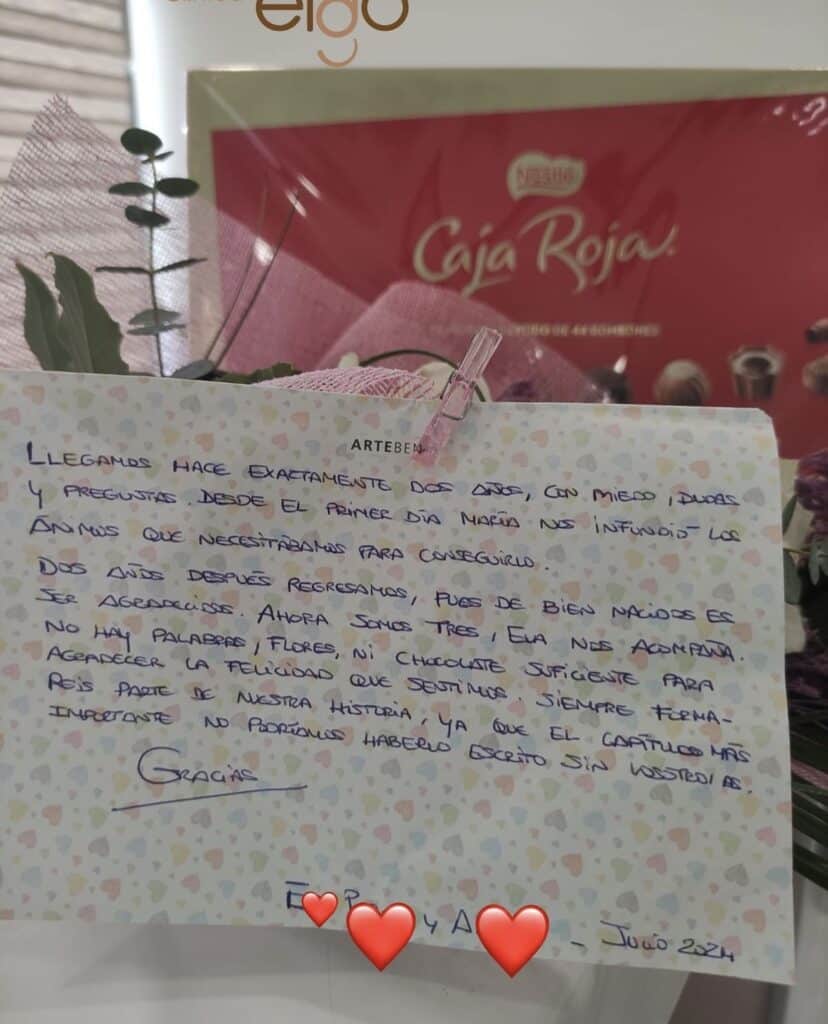 eigo
Nestlé
Caja Roja
DE 44 BOMBONES
ARTEBEN
LLEGAMOS HACE EXACTAMENTE DOS AÑOS, CON MIEDO, DUDAS
Y PREGUNTAS. DESDE EL PRIMER DÍA MARÍA NOS INFUNDIÓ LOS
ÁNIMOS QUE NECESITÁBAMOS PARA CONSEGUIRLO.
DOS AÑOS DESPUÉS REGRESAMOS, PUES DE BIEN NACIDOS ES
SER AGRADECIDOS. AHORA SOMOS TRES, ELA NOS ACOMPAÑA.
NO HAY PALABRAS, FLORES, NI CHOCOLATE SUFICIENTE PARA
AGRADECER LA FELICIDAD QUE SENTIMOS. SIEMPRE FORMA-
REIS PARTE DE NUESTRA HISTORIA, YA QUE EL CAPÍTULO MÁS
IMPORTANTE NO PODRÍAMOS HABERLO ESCRITO SIN VOSOTROS/AS.
GRACIAS
E P y A - JULIO 2024